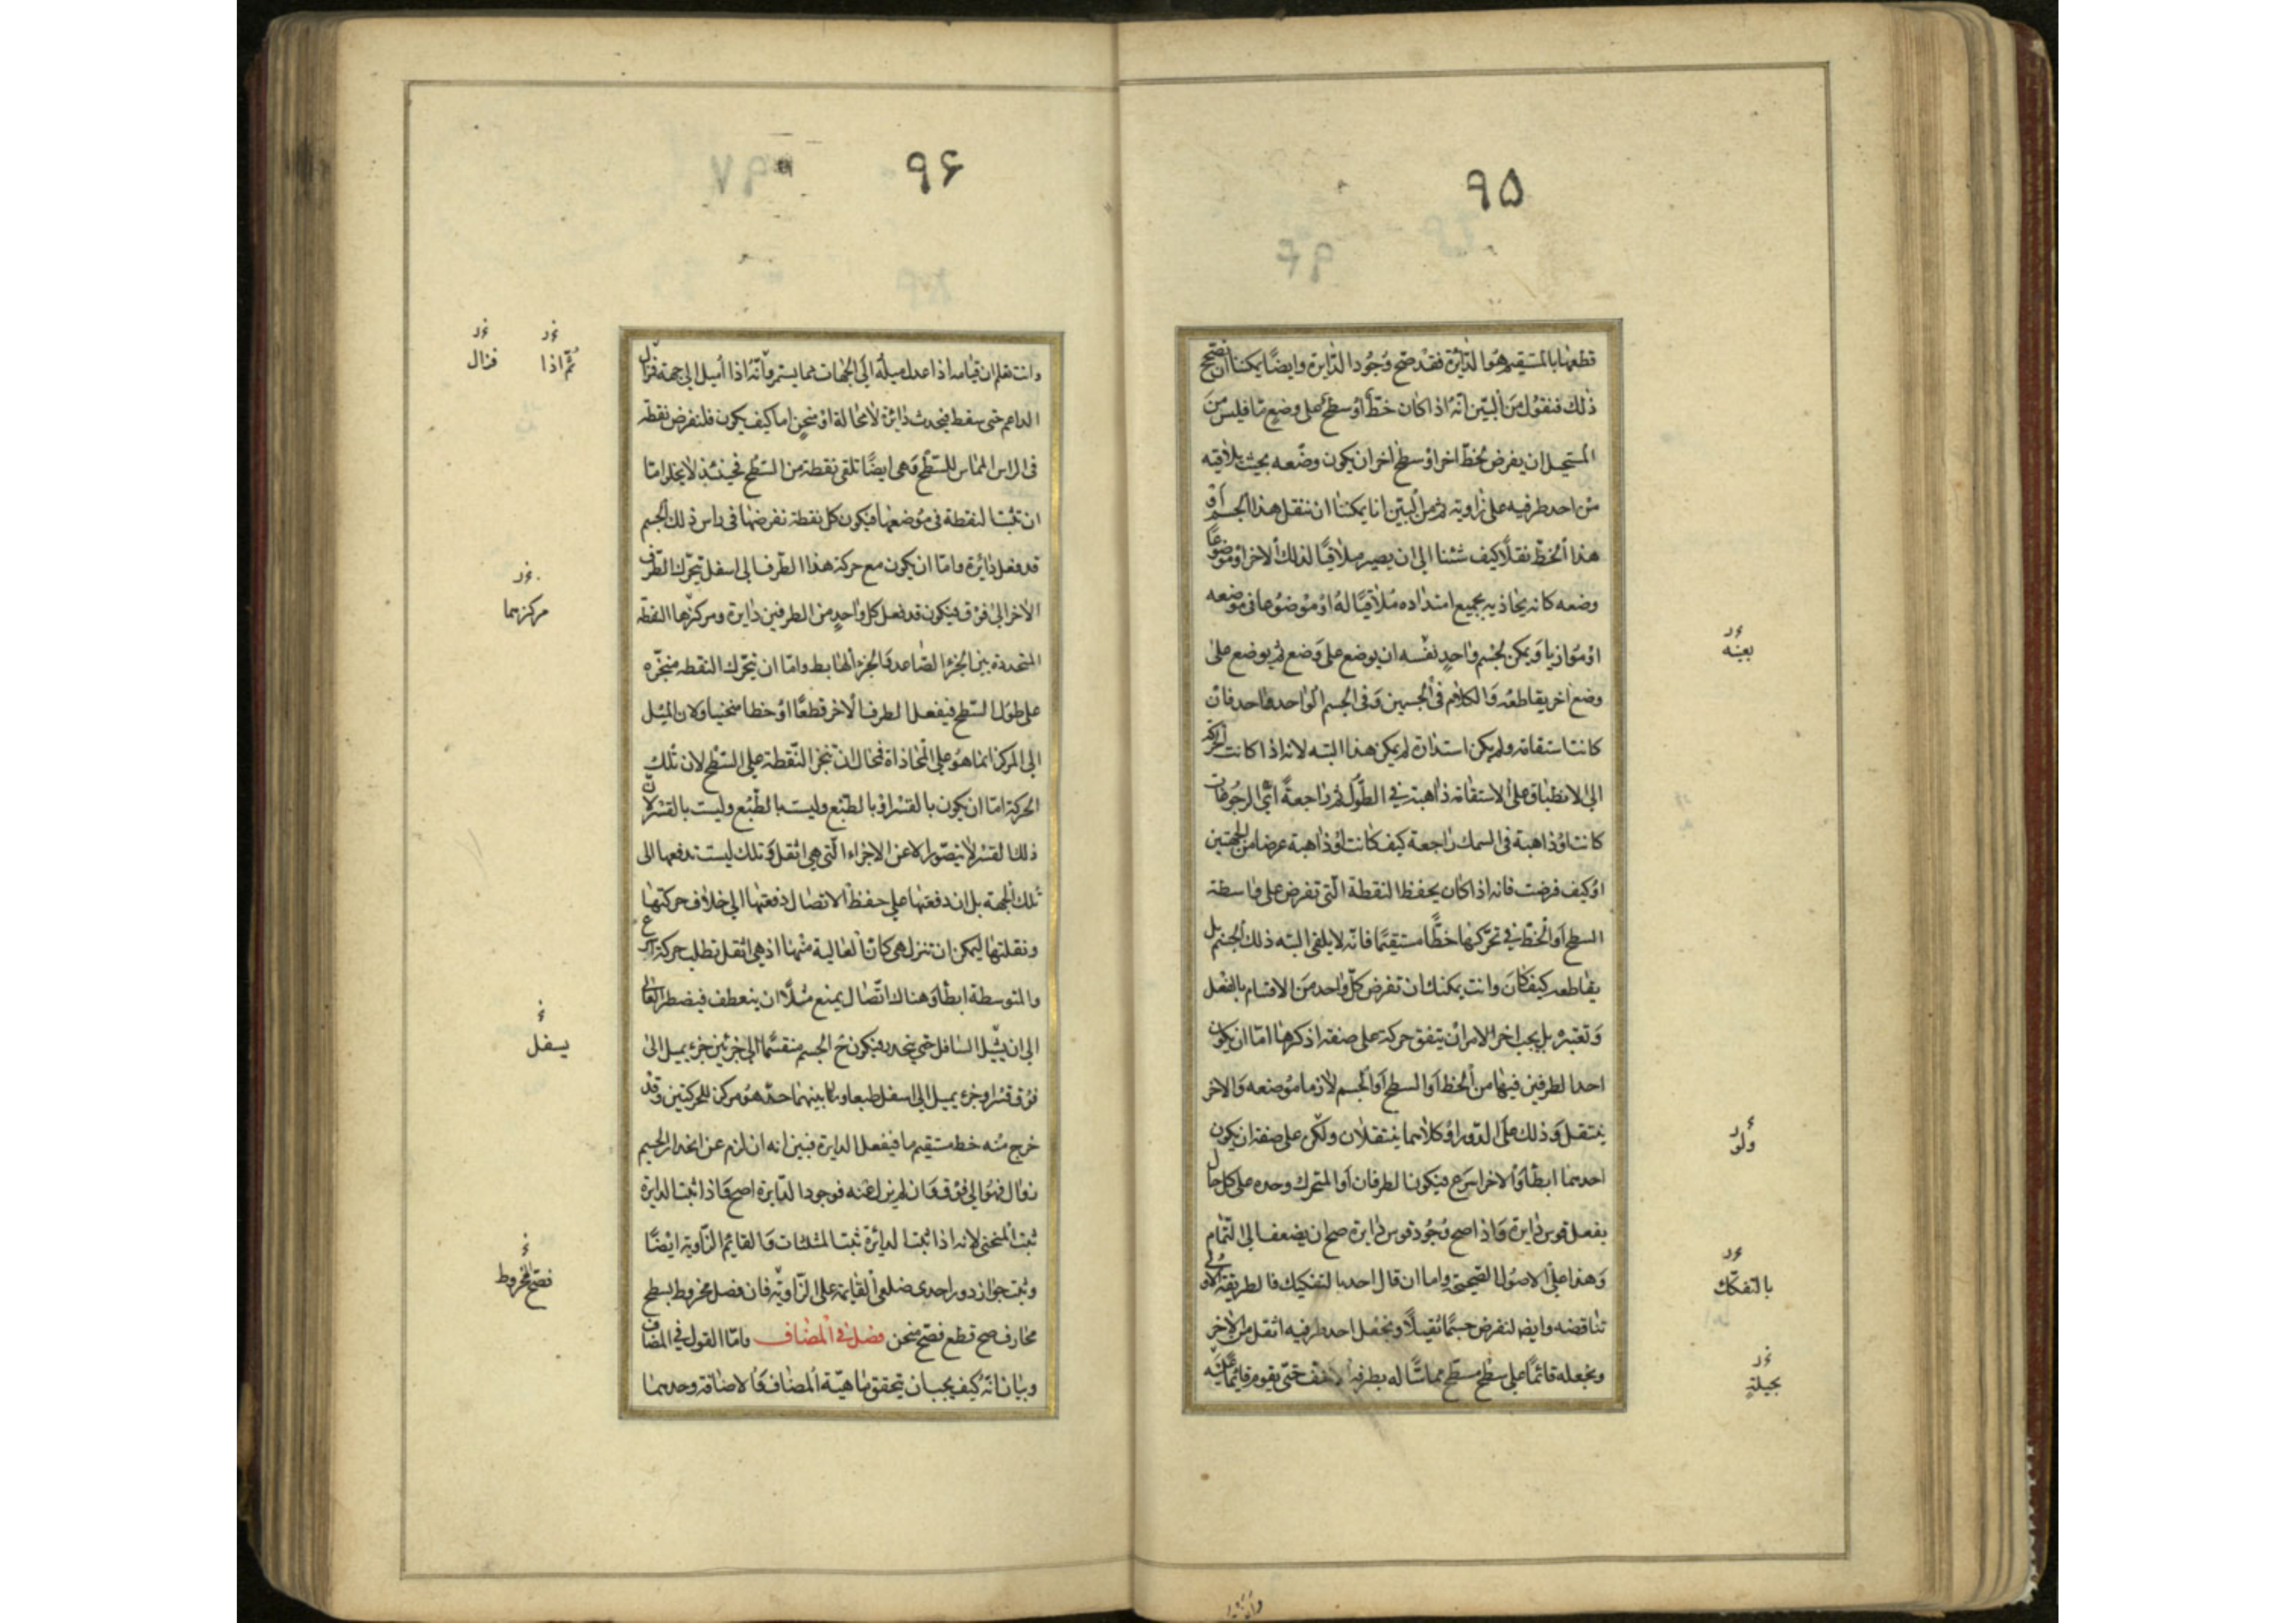 ٩٥
قطعها بالمستقيم هو الدايرة فقد صح وجود الدايرة وايضا يمكننا ان نصحح
ذلك فنقول من البين انه اذا كان خط او سطح على وضع ما فليس من
المستحيل ان يفرض لخط اخر او سطح اخر ان يكون وضعه بحيث يلاقيه
من احد طرفيه على زاوية ثم من البين انا يمكننا ان ننقل هذا الجسم او
هذا الخط نقلا كيف شئنا الى ان يصير ملاقيا لذلك الاخر او موضوعا
وضعه كانه يحاذيه بجميع امتداده ملاقيا له او موضوعا في موضعه
او موازيا ويمكن لجسم واحد نفسه ان يوضع على وضع ثم يوضع على
وضع اخر يقاطعه والكلام في الجسمين وفي الجسم الواحد واحد فان
كانت استقامة ولم يكن استدارة لم يمكن هذا البتة لانه اذا كانت الحركة
الى الانطباق على الاستقامة ذاهبة في الطول ثم راجعة اي الرجوعات
كانت او ذاهبة في السمك راجعة كيف كانت او ذاهبة عرضا من الجهتين
او كيف فرضت فانه اذا كان يحفظ النقطة التي تفرض على واسطة
السطح او الخط في تحركها خطا مستقيما فانه لا يلقى البتة ذلك الجسم بل
يقاطعه كيف كان وانت يمكنك ان تفرض كل واحد من الاقسام بالفعل
وتعتبره بل يجب اخر الامر ان يتفق حركة على صفة اذكرها اما ان يكون
احد الطرفين فيها من الخط او السطح او الجسم لازما موضعه والاخر
ينتقل وذلك على الدور او كلاهما ينتقلان ولكن على صفة ان يكون
احدهما ابطأ والاخر اسرع فيكون الطرفان او المتحرك وحده على كل حال
يفعل قوس دايرة واذا صح وجود قوس دايرة صح ان يضعف الى التمام
وهذا على الاصول الصحيحة واما ان قال احد بالتفكيك فالطريقة الاولى
تناقضه وايضا لنفرض جسما ثقيلا ونجعل احد طرفيه اثقل من الاخر
ونجعله قائما على سطح مسطح مماسا له بطرفه الاخف حتى يقوم قائما عليه
بعينه
ولو
بالتفكك
بحيلة
٩۶
وانت تعلم ان قيامه اذا عدل ميله الى الجهات مما يستمر وانه اذا اميل الى جهة فزال
الداعم حتى سقط فيحدث دائرة لا محالة او منحن اما كيف يكون فلنفرض نقطة
في الراس المماس للسطح وهي ايضا تلقى نقطة من السطح فحينئذ لا يخلو اما
ان تثبت النقطة في موضعها فيكون كل نقطة نفرضها في راس ذلك الجسم
قد فعل دائرة واما ان يكون مع حركة هذا الطرف الى اسفل يتحرك الطرف
الاخر الى فوق فيكون قد فعل كل واحد من الطرفين دايرة ومركزها النقطة
المتحددة بين الجزء الصاعد والجزء الهابط واما ان تتحرك النقطة منجرة
على طول السطح فيفعل الطرف الاخر قطعا او خطا منحنيا ولان الميل
الى المركز انما هو على المحاذاة فمحال ان تنجر النقطة على السطح لان تلك
الحركة اما ان يكون بالقسر او بالطبع وليست بالطبع وليست بالقسر لان
ذلك القسر لا يتصور الا عن الاجزاء التي هي اثقل وتلك ليست تدفعها الى
تلك الجهة بل ان دفعتها على حفظ الاتصال دفعتها الى خلاف حركتها
ونقلتها ليمكن ان تنزل هي كان العالية منها اذ هي اثقل تطلب حركة اسرع
والمتوسطة ابطأ وهناك اتصال يمنع مثلا ان ينعطف فيضطر العالي
الى ان يشيل السافل حتى ينحدر فيكون ح الجسم منقسما الى جزئين جزء يميل الى
فوق قسرا وجزء يميل الى اسفل طبعا وما بينهما حد هو مركز للحركتين وقد
خرج منه خط مستقيم ما فيفعل الدايرة فبين انه ان لزم عن انحدار الجسم
زوال فهو الى فوق وان لم يزل عنه فوجود الدايرة اصح واذا ثبتت الدايرة
ثبت المنحنى لانه اذا ثبتت الدائرة ثبتت المثلثات والقايم الزاوية ايضا
وثبت جواز دور احدى ضلعي القايمة على الزاوية فان فصل مخروط بسطح
محارف صح قطع فصح منحن فصل في المضاف واما القول في المضاف
وبيان انه كيف يجب ان يتحقق ماهية المضاف والاضافة وحدهما
ثم اذا
فزال
مركزهما
يسفل
فصح المخروط